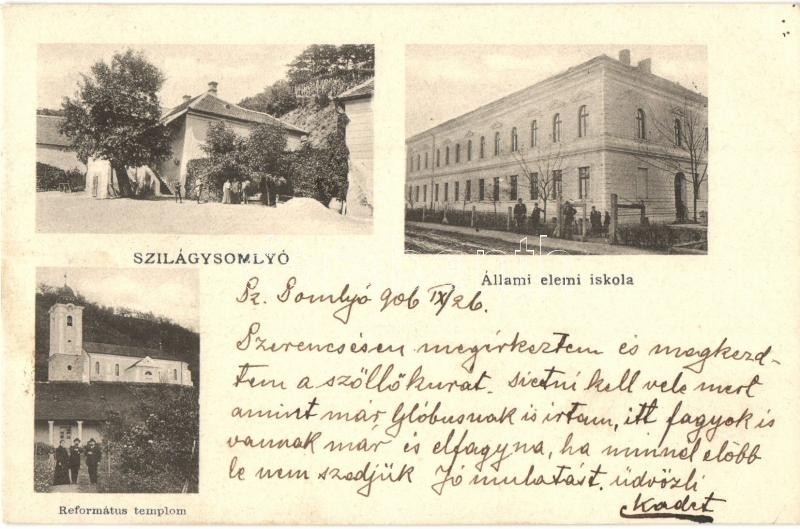 SZILÁGYSOMLYÓ
Állami elemi iskola
Sz. Somlyó 906 IX/26.
Szerencsésen megérkeztem és megkezd-
tem a szőllőkurat. sietni kell vele mert
amint már Glóbusnak is irtam, itt fagyok is
vannak már és elfagyna, ha minnél előbb
le nem szedjük Jó mulatást. üdvözli
Kadet
Református templom